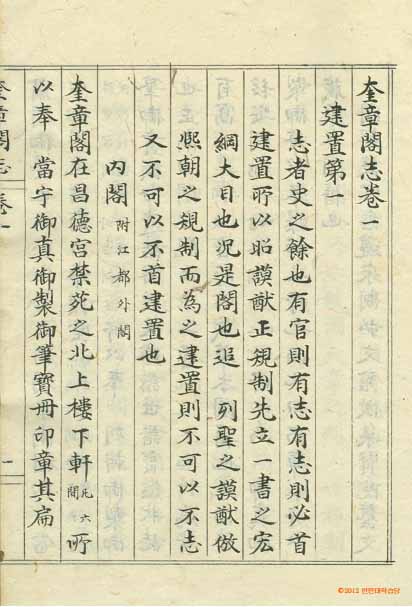 奎章閣志卷一
建置第一
志者史之餘也有官則有志有志則必首
建置所以昭謨猷正規制先立一書之宏
綱大目也況是閣也追列聖之謨猷倣
熙朝之規制而為之建置則不可以不志
又不可以不首建置也
內閣附江都外閣
奎章閣在昌德宮禁苑之北上樓下軒凡六間所
以奉當宁御真御製御筆寶冊印章其扁
奎章閣志 卷一 一